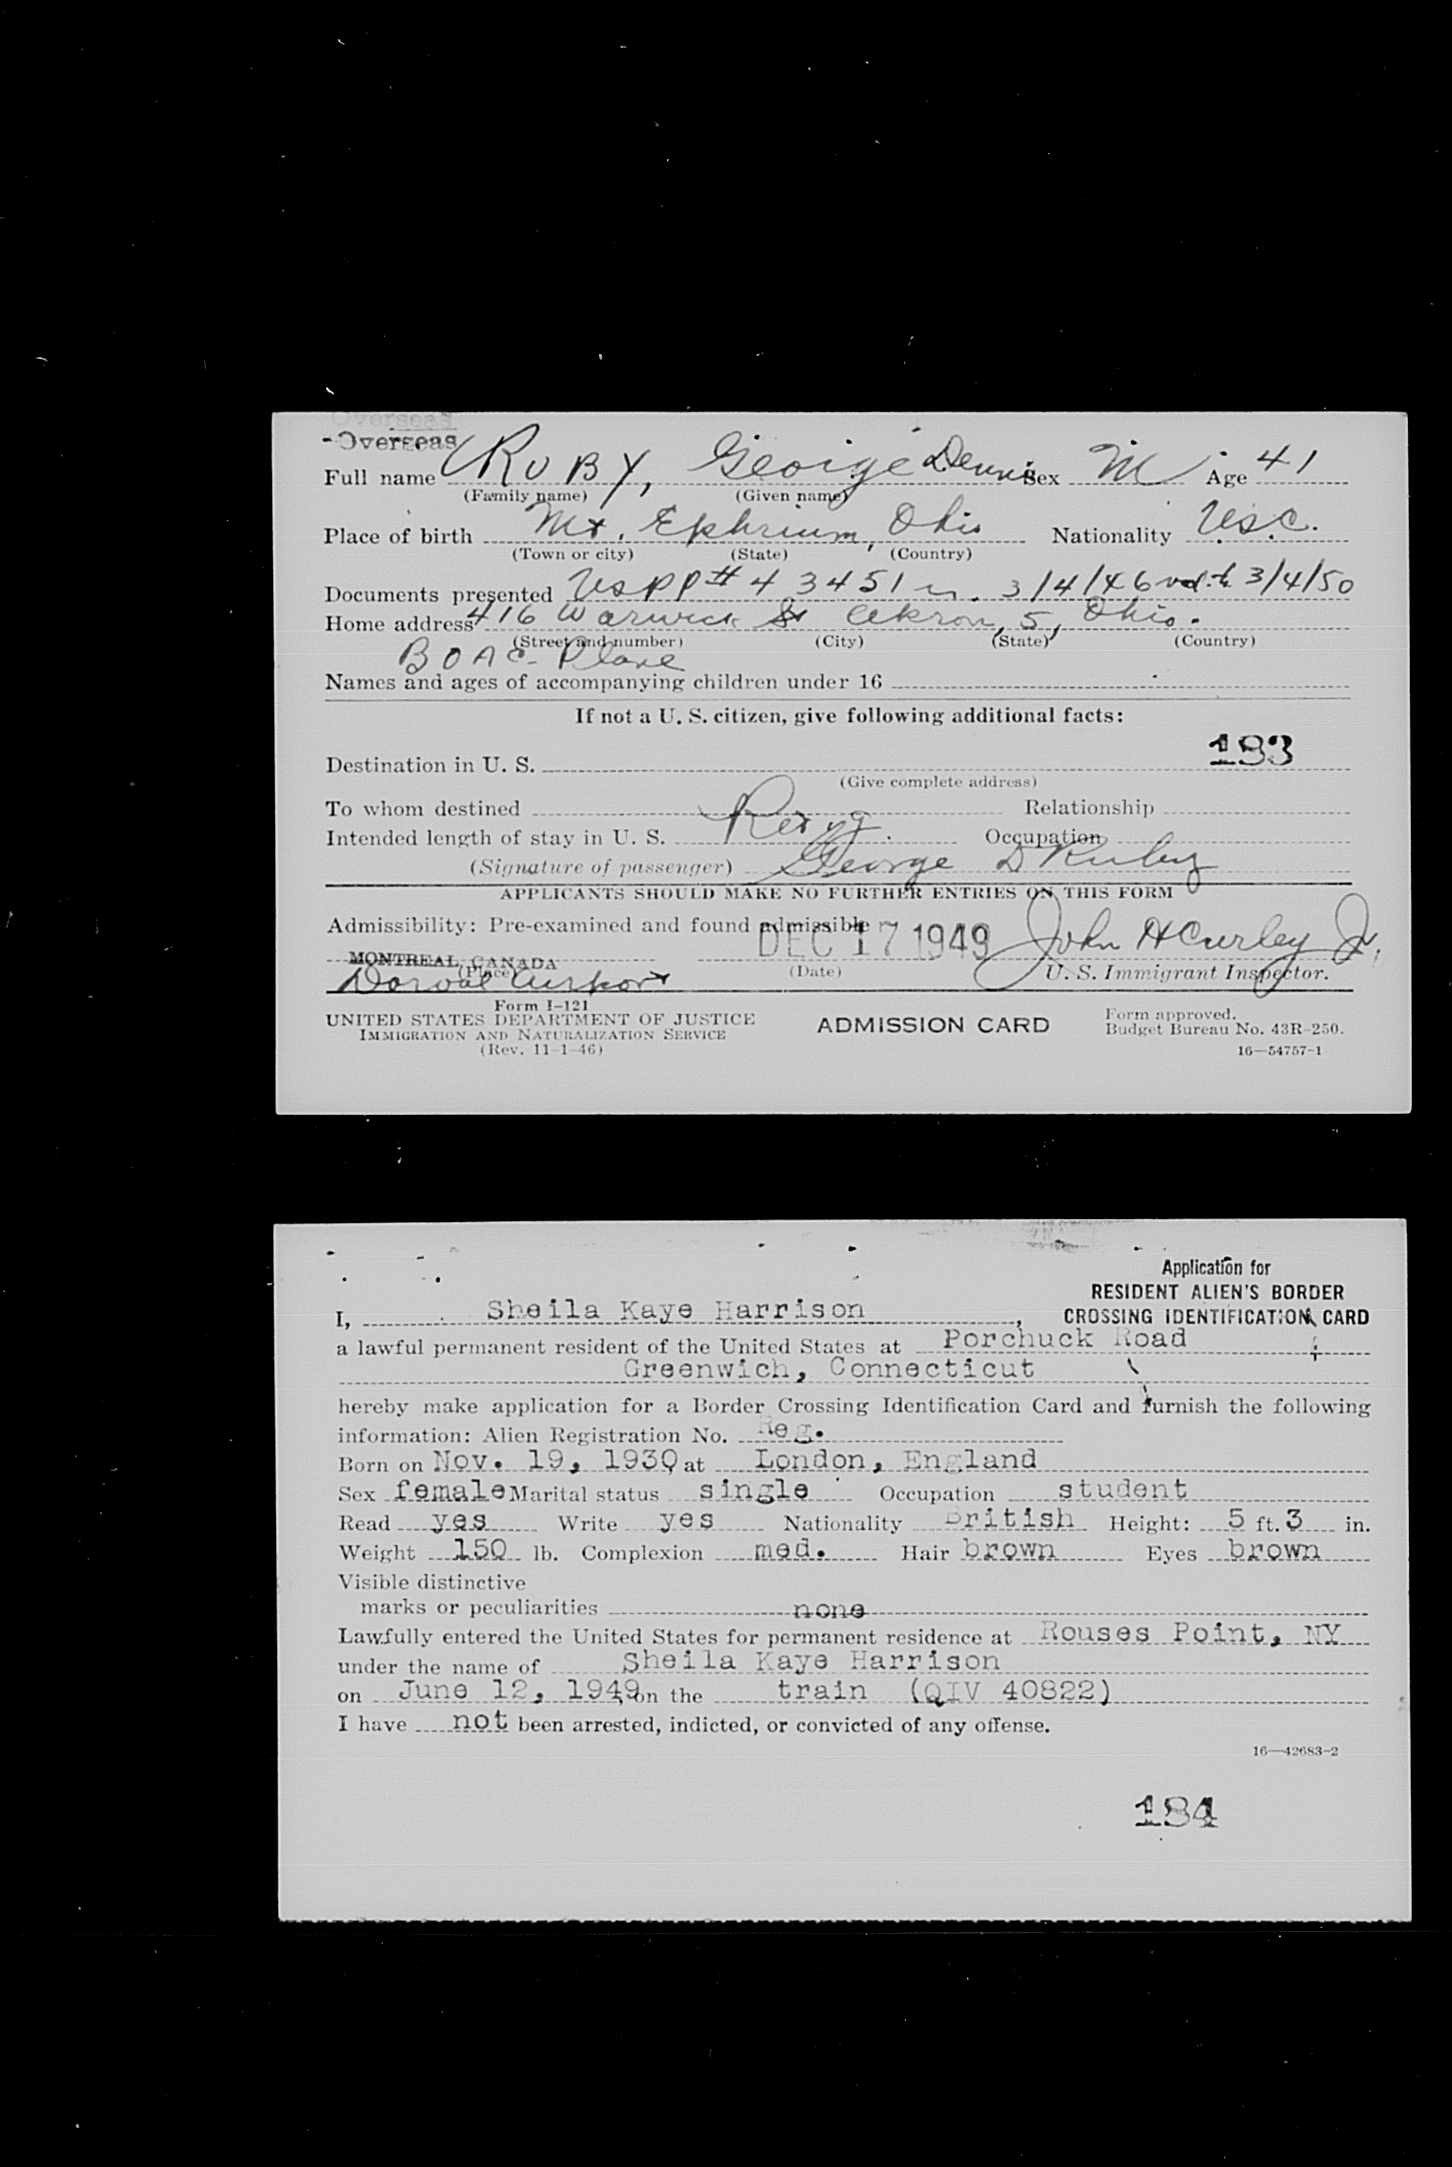 Overseas
-Overseas
Full name RUBY, George Dennis Sex M Age 41
(Family name) (Given name)
Place of birth Mt. Ephrium, Ohio Nationality USC.
(Town or city) (State) (Country)
Documents presented USPP# 43451 3/4/46 3/4/50
Home address 416 Warwick St Akron, 5, Ohio.
(Street and number) (City) (State) (Country)
BOAC Plane
Names and ages of accompanying children under 16
If not a U. S. citizen, give following additional facts:
193
Destination in U. S.
(Give complete address)
To whom destined Relationship
Intended length of stay in U. S. Occupation
(Signature of passenger) George D Ruby
APPLICANTS SHOULD MAKE NO FURTHER ENTRIES ON THIS FORM
Admissibility: Pre-examined and found admissible
DEC 17 1949 John H Curley Jr.
MONTREAL, CANADA
(Place) (Date) U. S. Immigrant Inspector.
Dorval Airport
Form I-121
UNITED STATES DEPARTMENT OF JUSTICE
IMMIGRATION AND NATURALIZATION SERVICE
(Rev. 11-1-46)
ADMISSION CARD
Form approved.
Budget Bureau No. 43R-250.
16—54757-1
Application for
RESIDENT ALIEN'S BORDER
CROSSING IDENTIFICATION CARD
I, Sheila Kaye Harrison,
a lawful permanent resident of the United States at Porchuck Road
Greenwich, Connecticut
hereby make application for a Border Crossing Identification Card and furnish the following
information: Alien Registration No. Reg.
Born on Nov. 19, 1930 at London, England
Sex female Marital status single Occupation student
Read yes Write yes Nationality British Height: 5 ft. 3 in.
Weight 150 lb. Complexion med. Hair brown Eyes brown
Visible distinctive
marks or peculiarities none
Lawfully entered the United States for permanent residence at Rouses Point, NY
under the name of Sheila Kaye Harrison
on June 12, 1949 on the train (QIV 40822)
I have not been arrested, indicted, or convicted of any offense.
16—42683-2
184